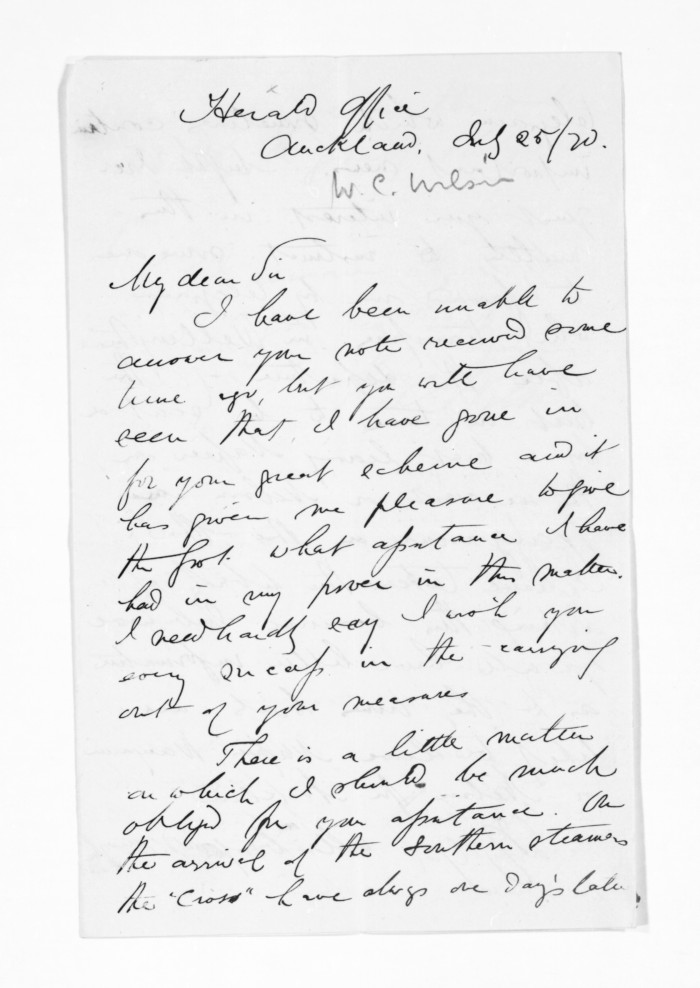 Herald Office
Auckland, July 25/70.
W. C. Wilson
My dear Sir
I have been unable to
answer your note received some
time ago, but you will have
seen that I have gone in
for your great scheme and it
has given me pleasure to give
the Govt. what assistance I have
had in my power in this matter.
I need hardly say I wish you
every success in the carrying
out of your measures
There is a little matter
on which I should be much
obliged for your assistance. On
the arrival of the Southern steamers
the "Cross" have always one day's later